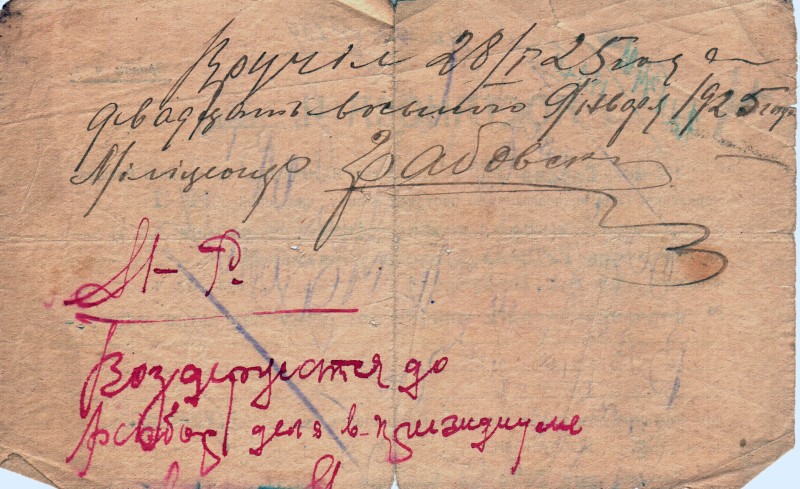 Вручіл 28/I 25 года
двадцать восьмого Января 1925 года
Міліціонер Грабовски
Воздержатся до
розбор дела в президиуме